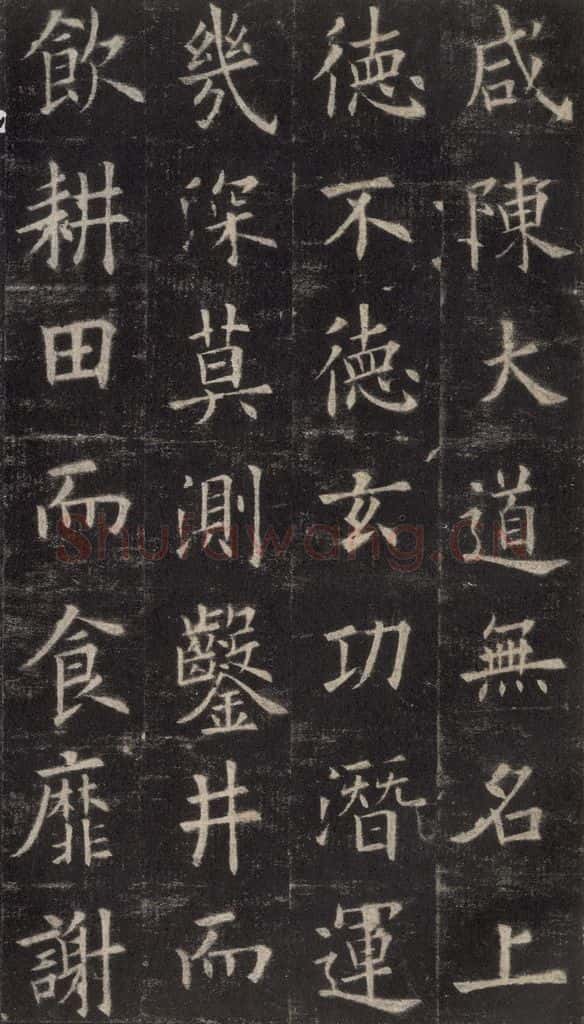 咸陳大道無名上
徳不徳玄功潛運
幾深莫測鑿井而
飲耕田而食靡謝
Shufawang.cn